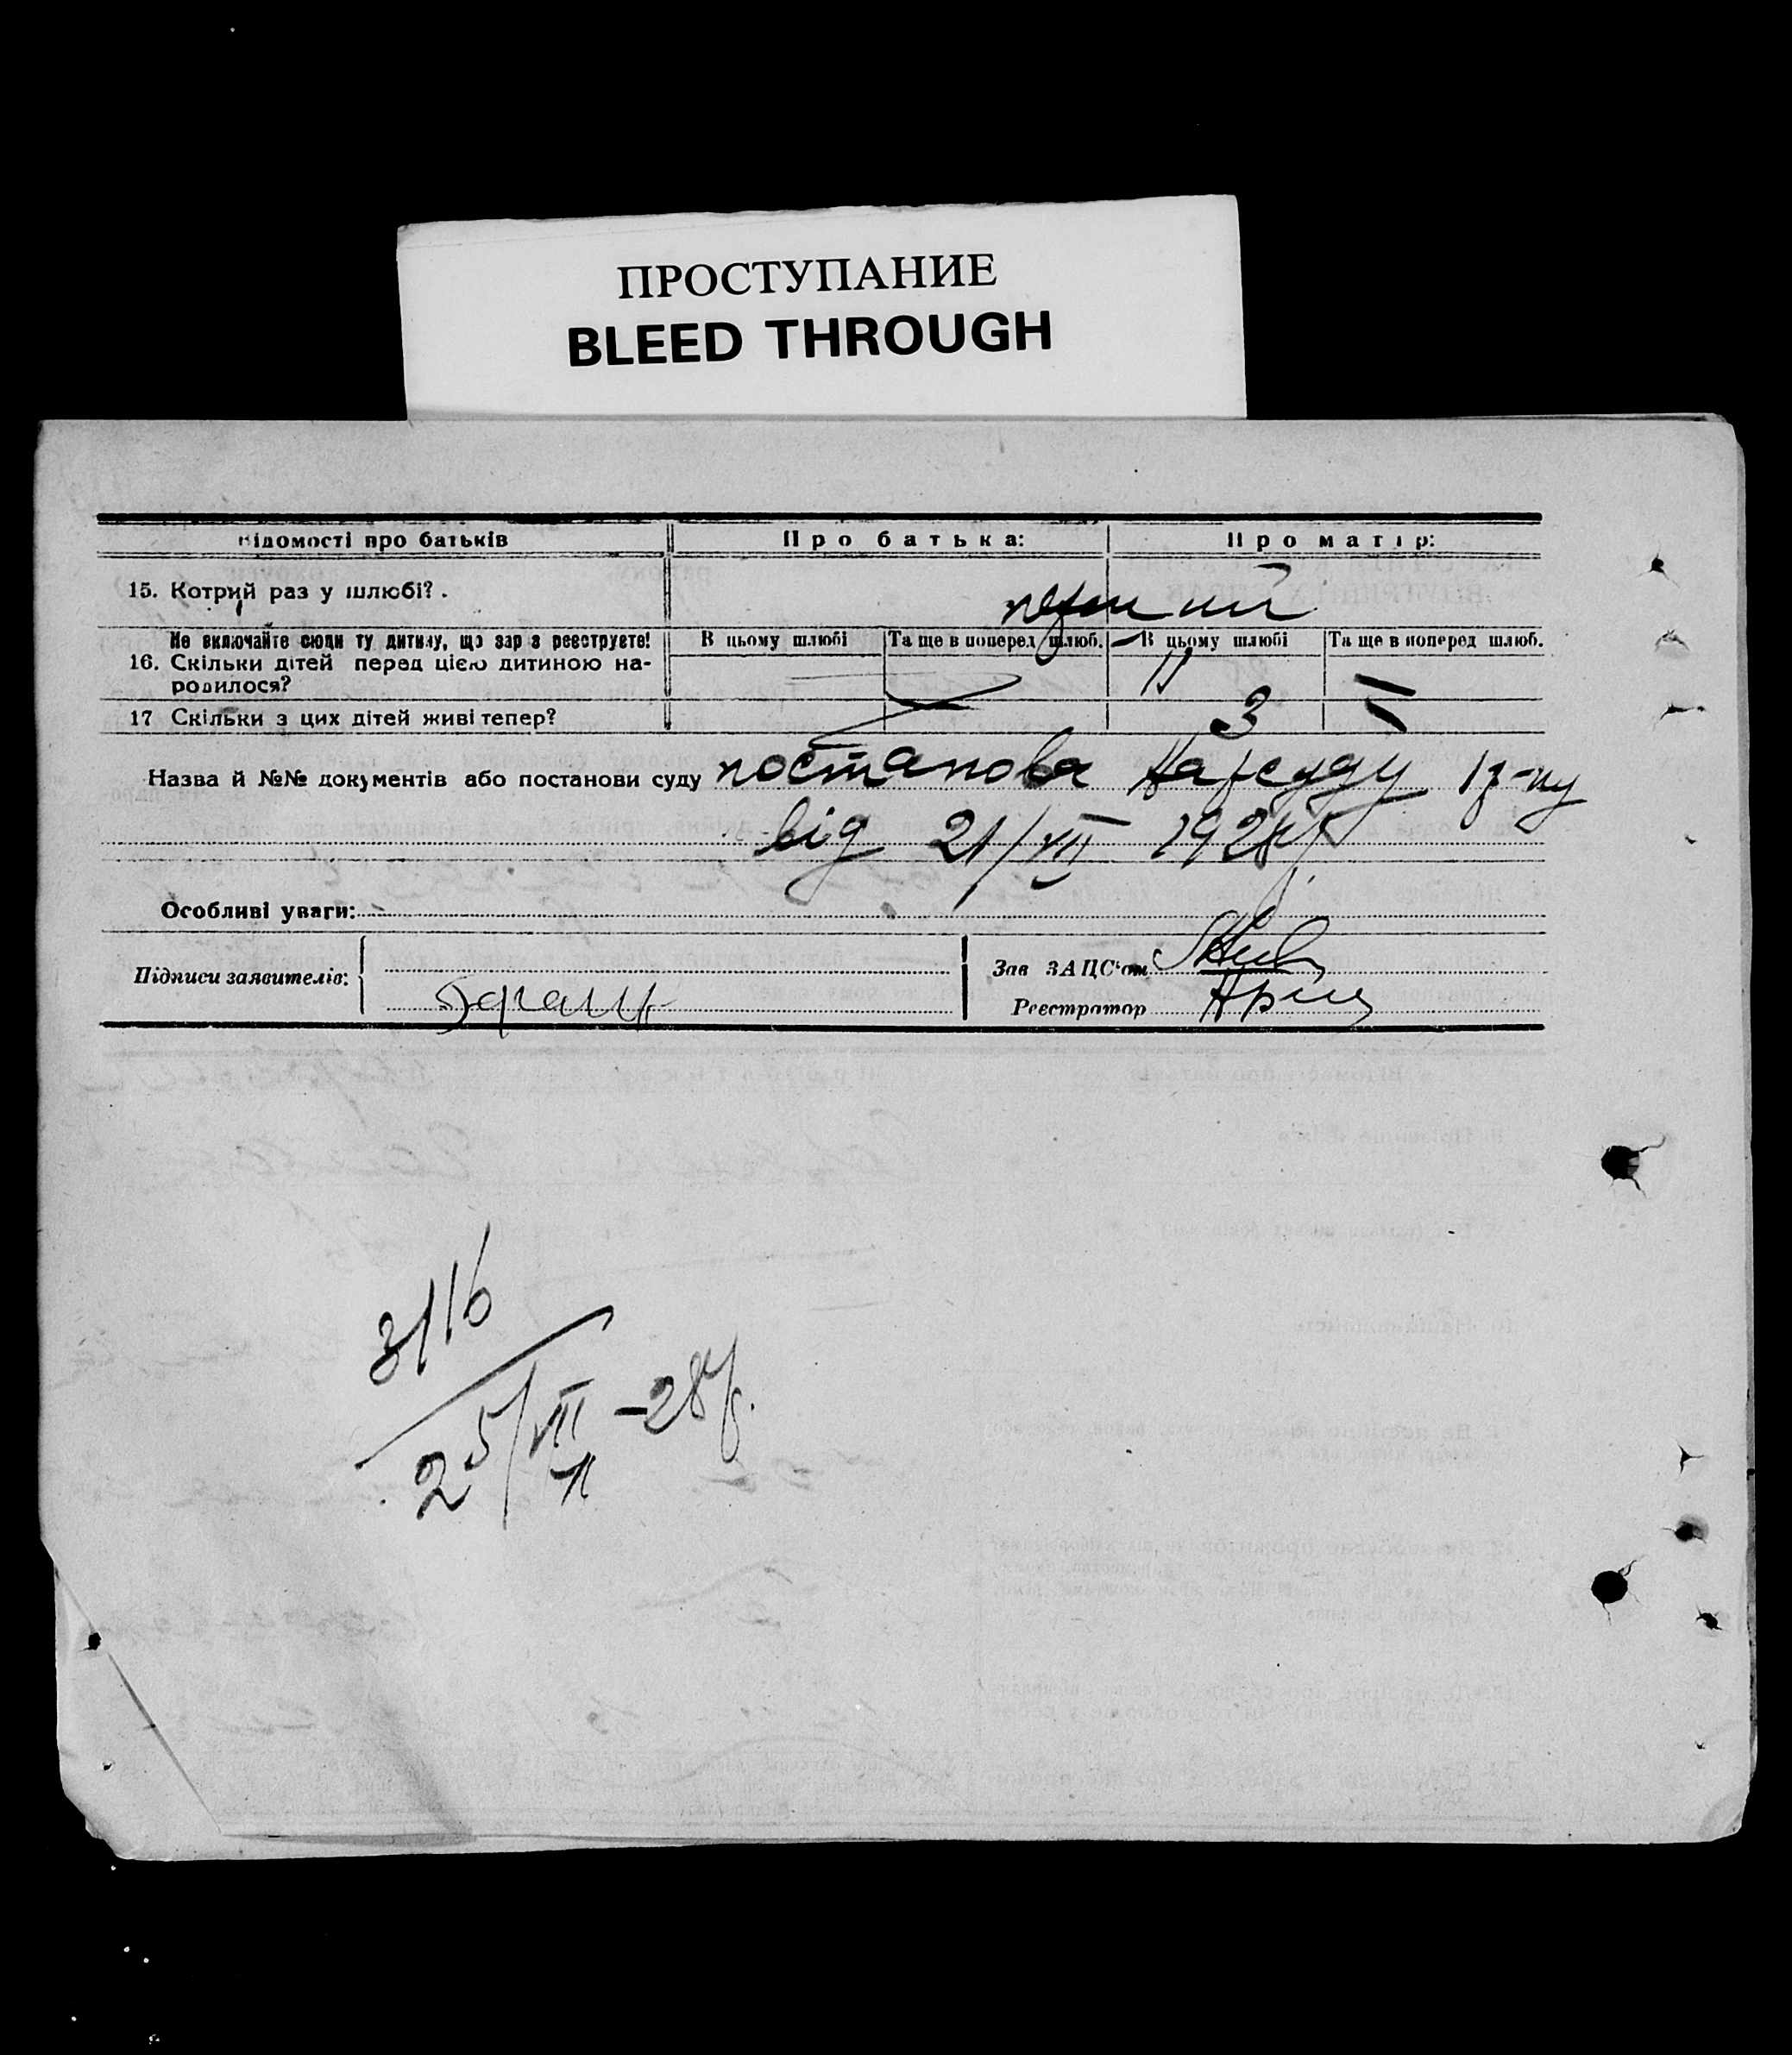 ПРОСТУПАНИЕ
BLEED THROUGH
Відомості про батьків Про батька: Про матір:
15. Котрий раз у шлюбі? . перший
Не включайте сюди ту дитину, що зараз реєструєте! В цьому шлюбі Та ще в поперед шлюб. В цьому шлюбі Та ще в поперед шлюб.
16. Скільки дітей перед цією дитиною на-
родилося?
17 Скільки з цих дітей живі тепер? 3
Назва й №№ документів або постанови суду постанова Нарсуду
від 21/VII 1928р
Особливі уваги:
Підписи заявителів:
Зав ЗАГС'ом
Реєстратор
3116
25/VII –28р.